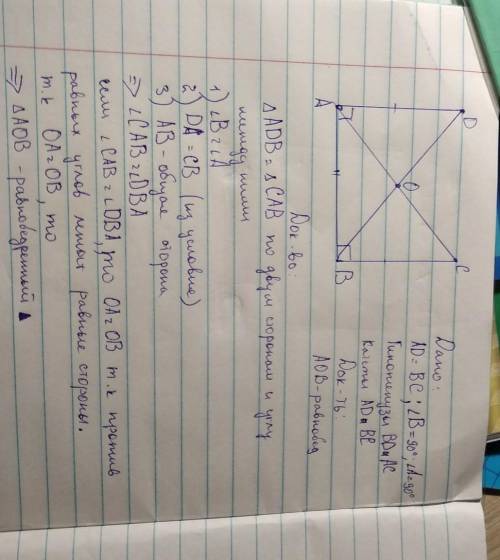 D
C
O
A
B
Дано:
AD = BC; ∠B = 90°; ∠A = 90°
Гипотенузы BD и AC
Катеты AD и BC
Док-ть:
AOB - равнобед
Док-во:
△ADB = △CAB по двум сторонам и углу
между ними
1) ∠B = ∠A
2) DA = CB (из условие)
3) AB - общая сторона
=> ∠CAB = ∠DBA
если ∠CAB = ∠DBA, то OA = OB т.к против
равных углов лежат равные стороны.
т.к OA = OB, то
=> △AOB - равнобедренный ▲